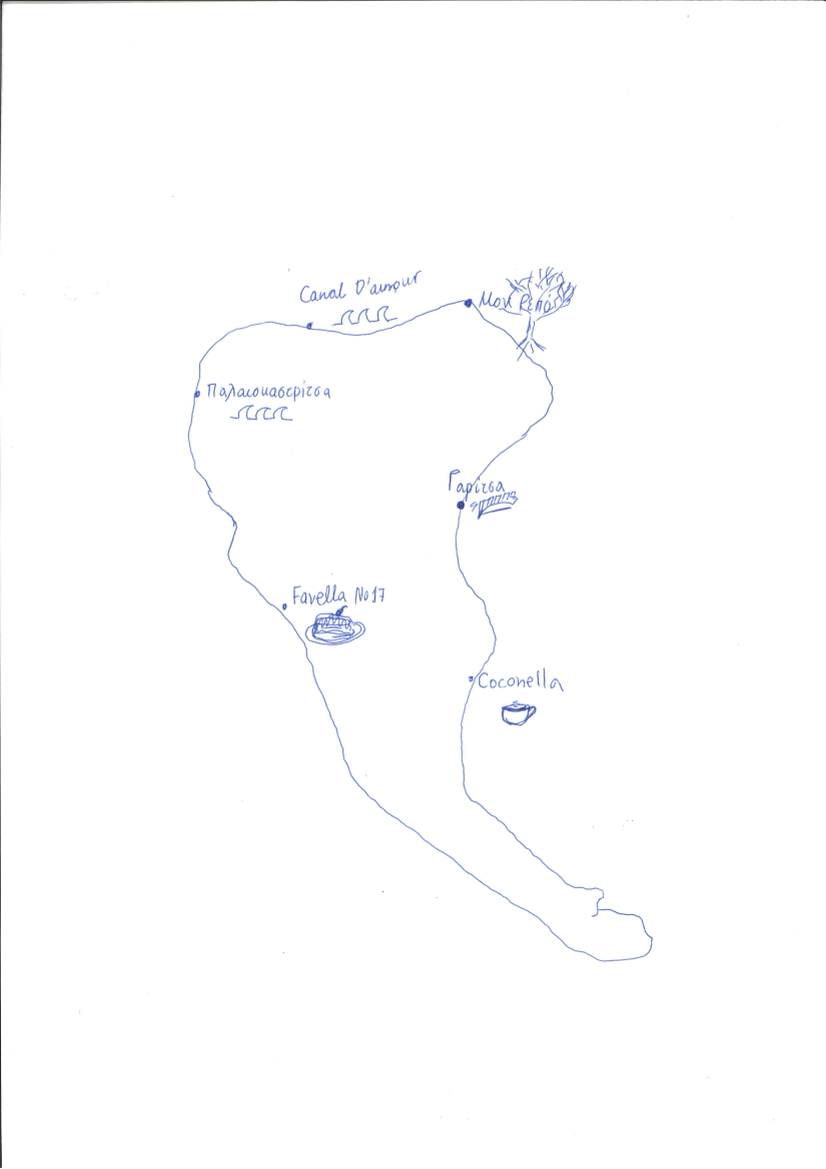 Canal D'amour
Μον Ρεπό
Παλαιοκαστρίτσα
Γαρίτσα
Favella No17
Coconella